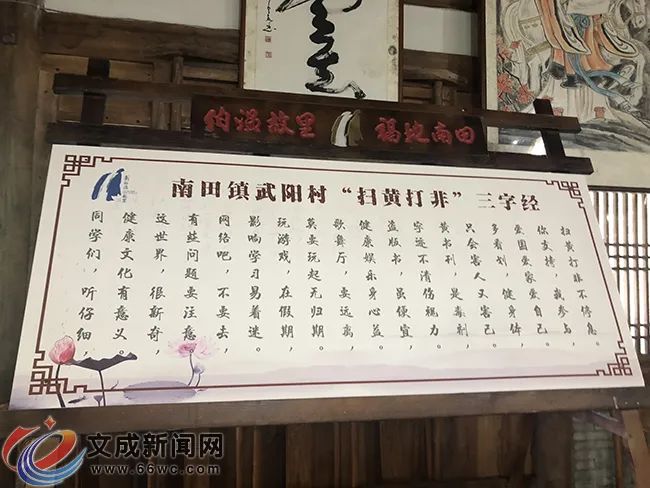 伯温故里 福地南田
南田镇武阳村“扫黄打非”三字经
同学们，听仔细，
健康文化有意义。
这世界，很新奇，
有些问题要注意。
网络吧，不要去，
影响学习易着迷。
玩游戏，在假期，
莫要玩起无归期。
歌舞厅，要远离，
健康娱乐身心益。
盗版书，虽便宜，
字迹不清伤视力。
黄书刊，是毒剂，
只会害人又害己。
多看，健身体，
爱国爱家爱自己。
你支持，我参与，
扫黄打非不停息。
文成新闻网
www.66wc.com